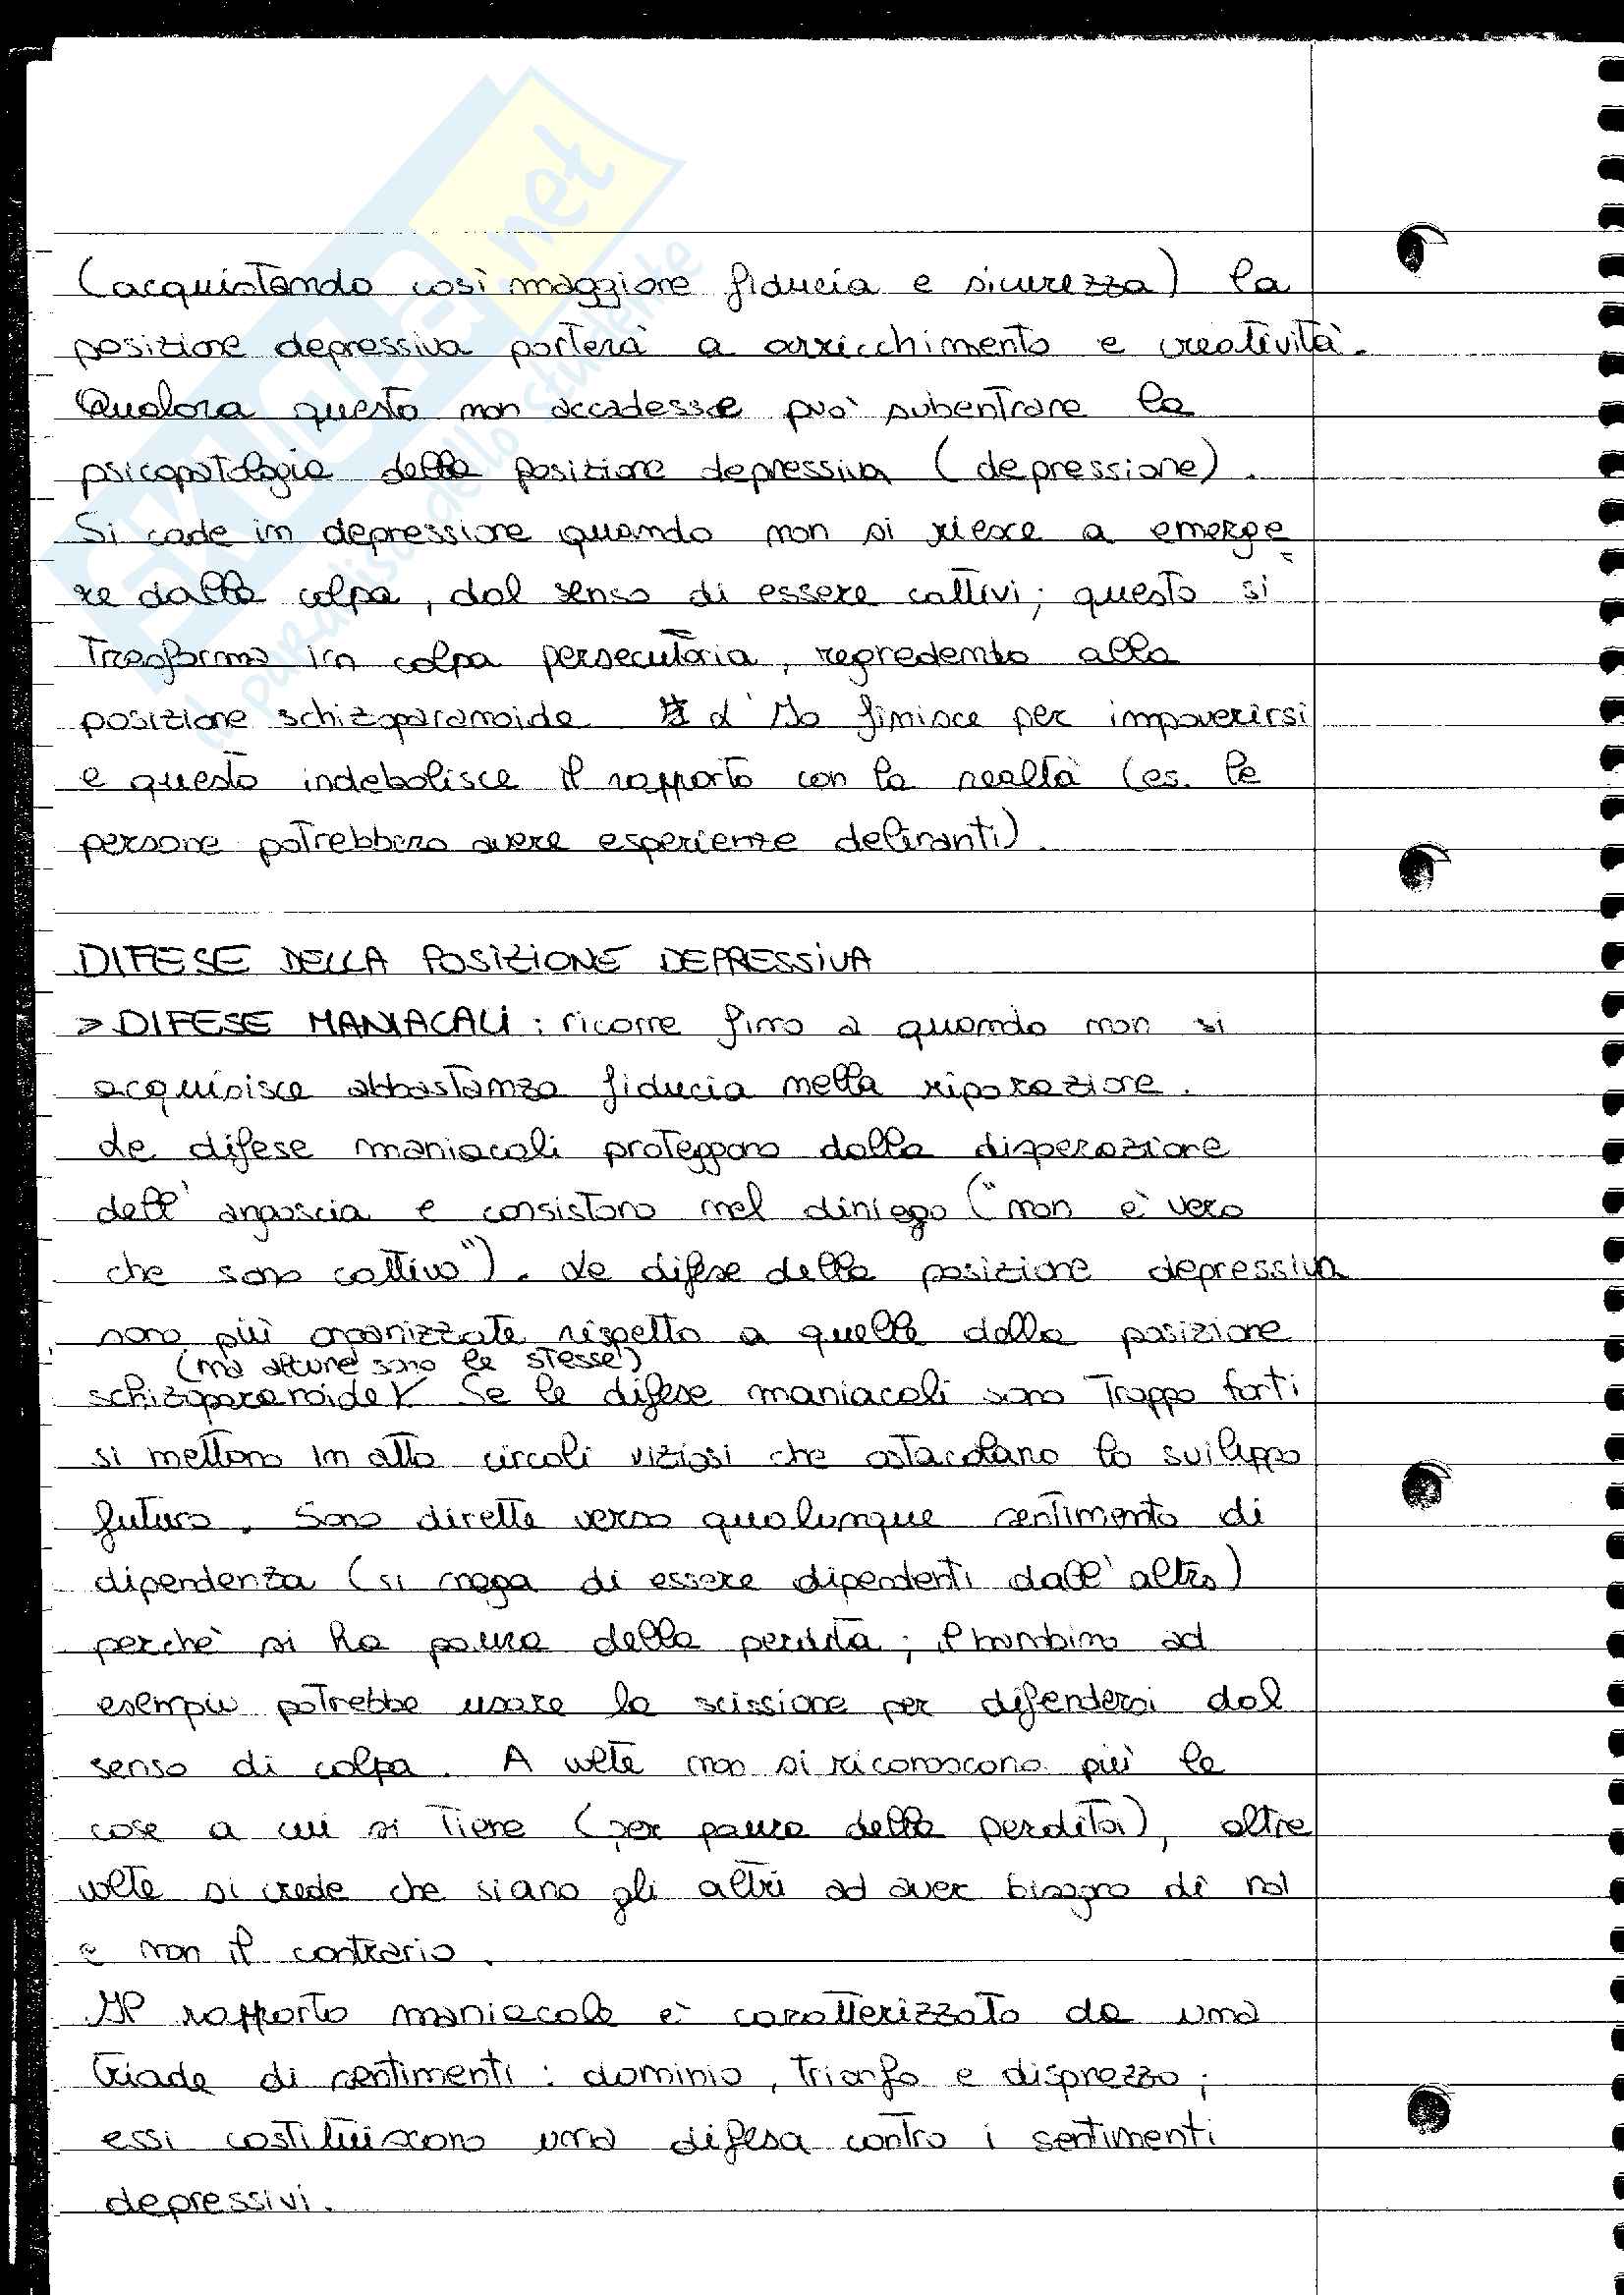 (acquistando così maggiore fiducia e sicurezza) la
posizione depressiva porterà a arricchimento e creatività.
Qualora questo non accadesse può subentrare la
psicopatologia della posizione depressiva (depressione).
Si cade in depressione quando non si riesce a emerge
re dalla colpa, dal senso di essere cattivi; questo si
trasforma in colpa persecutoria, regredendo alla
posizione schizoparanoide. L'Io finisce per impoverirsi
e questo indebolisce il rapporto con la realtà (es. le
persone potrebbero avere esperienze deliranti).
DIFESE DELLA POSIZIONE DEPRESSIVA
> DIFESE MANIACALI: ricorre fino a quando non si
acquisisce abbastanza fiducia nella riparazione.
Le difese maniacali proteggono dalla disperazione
dell'angoscia e consistono nel diniego ("non è vero
che sono cattivo"). Le difese della posizione depressiva
sono più organizzate rispetto a quelle della posizione
(ma alcune sono le stesse)
schizoparanoide. Se le difese maniacali sono troppo forti
si mettono in atto circoli viziosi che ostacolano lo sviluppo
futuro. Sono dirette verso qualunque sentimento di
dipendenza (si nega di essere dipendenti dall'altro)
perchè si ha paura della perdita; il bambino ad
esempio potrebbe usare la scissione per difendersi dal
senso di colpa. A volte non si riconoscono più le
cose a cui si tiene (per paura della perdita), altre
volte si crede che siano gli altri ad aver bisogno di noi
e non il contrario.
Il rapporto maniacale è caratterizzato da una
triade di sentimenti: dominio, trionfo e disprezzo;
essi costituiscono una difesa contro i sentimenti
depressivi.
SKUOLA.net
il paradiso dello studente